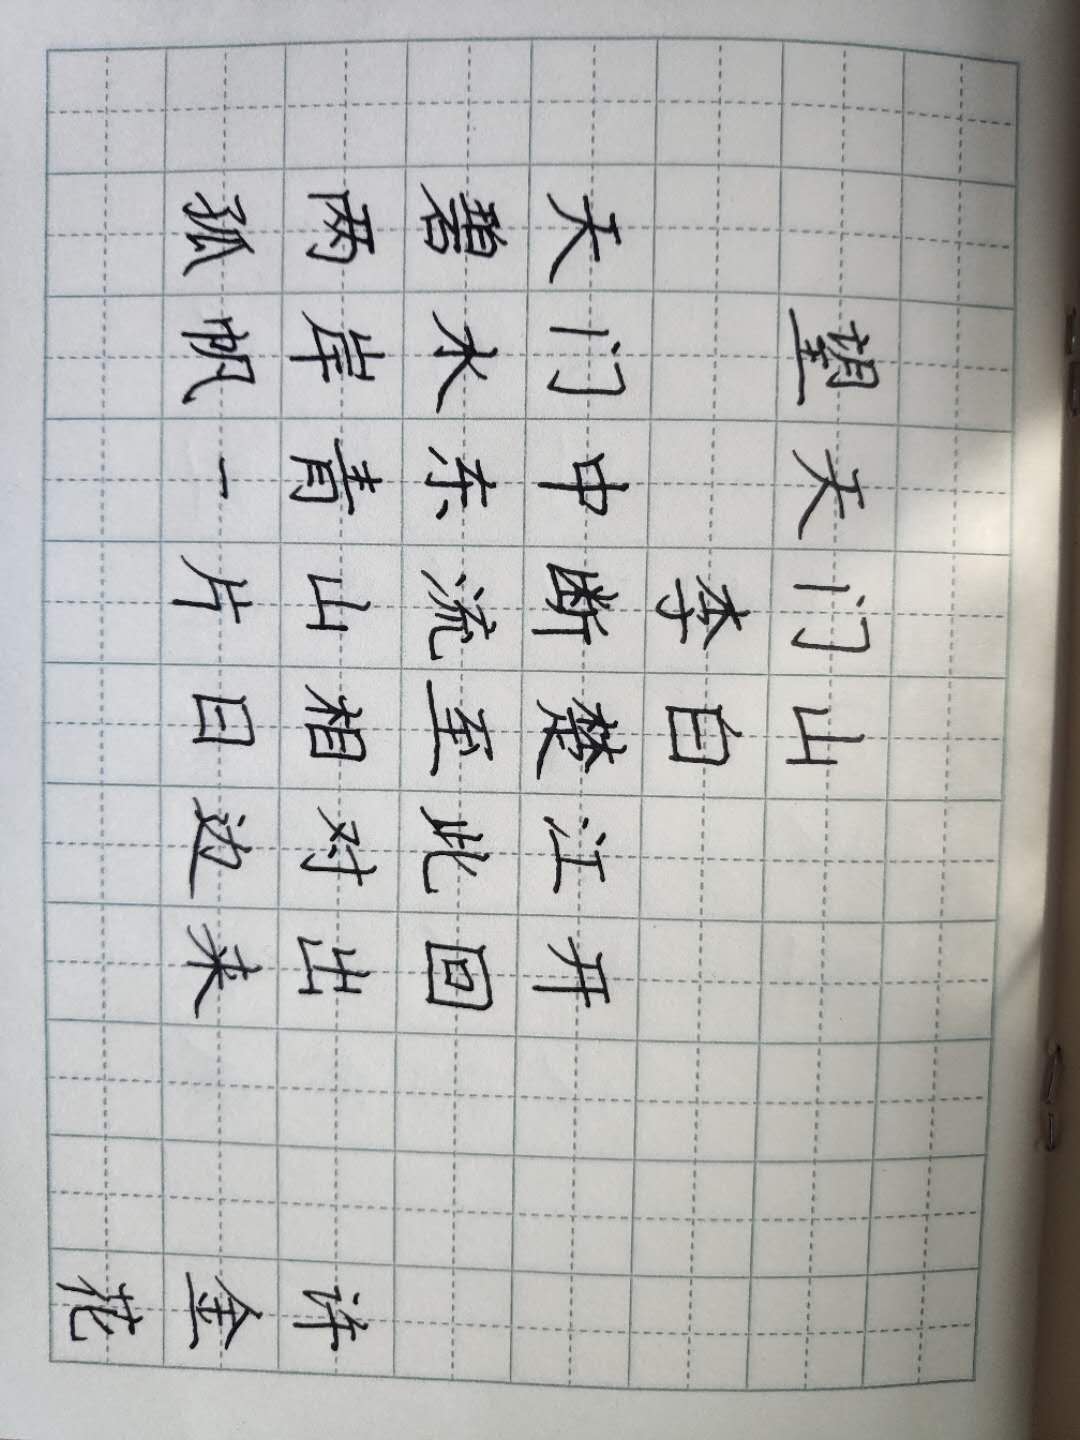 望天门山
李白
天门中断楚江开
碧水东流至此回
两岸青山相对出
孤帆一片日边来
许金花